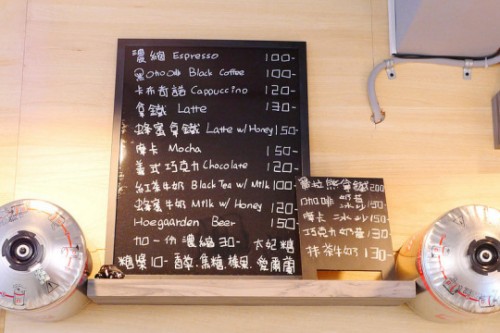 濃縮 Espresso 100-
黑咖啡 Black Coffee 100-
卡布奇諾 Cappuccino 120-
拿鐵 Latte 130-
蜂蜜拿鐵 Latte w/ Honey 150-
摩卡 Mocha 150-
義式巧克力 Chocolate 120-
紅茶牛奶 Black Tea w/ Milk 100-
蜂蜜牛奶 Milk w/ Honey 120-
Hoegaarden Beer 150-
加一份濃縮 30- 太妃糖
糖漿 10- 香草.焦糖.榛果.愛爾蘭
拿鐵 200
咖啡 150
摩卡 冰沙 150
巧克力 130
抹茶牛奶 130-